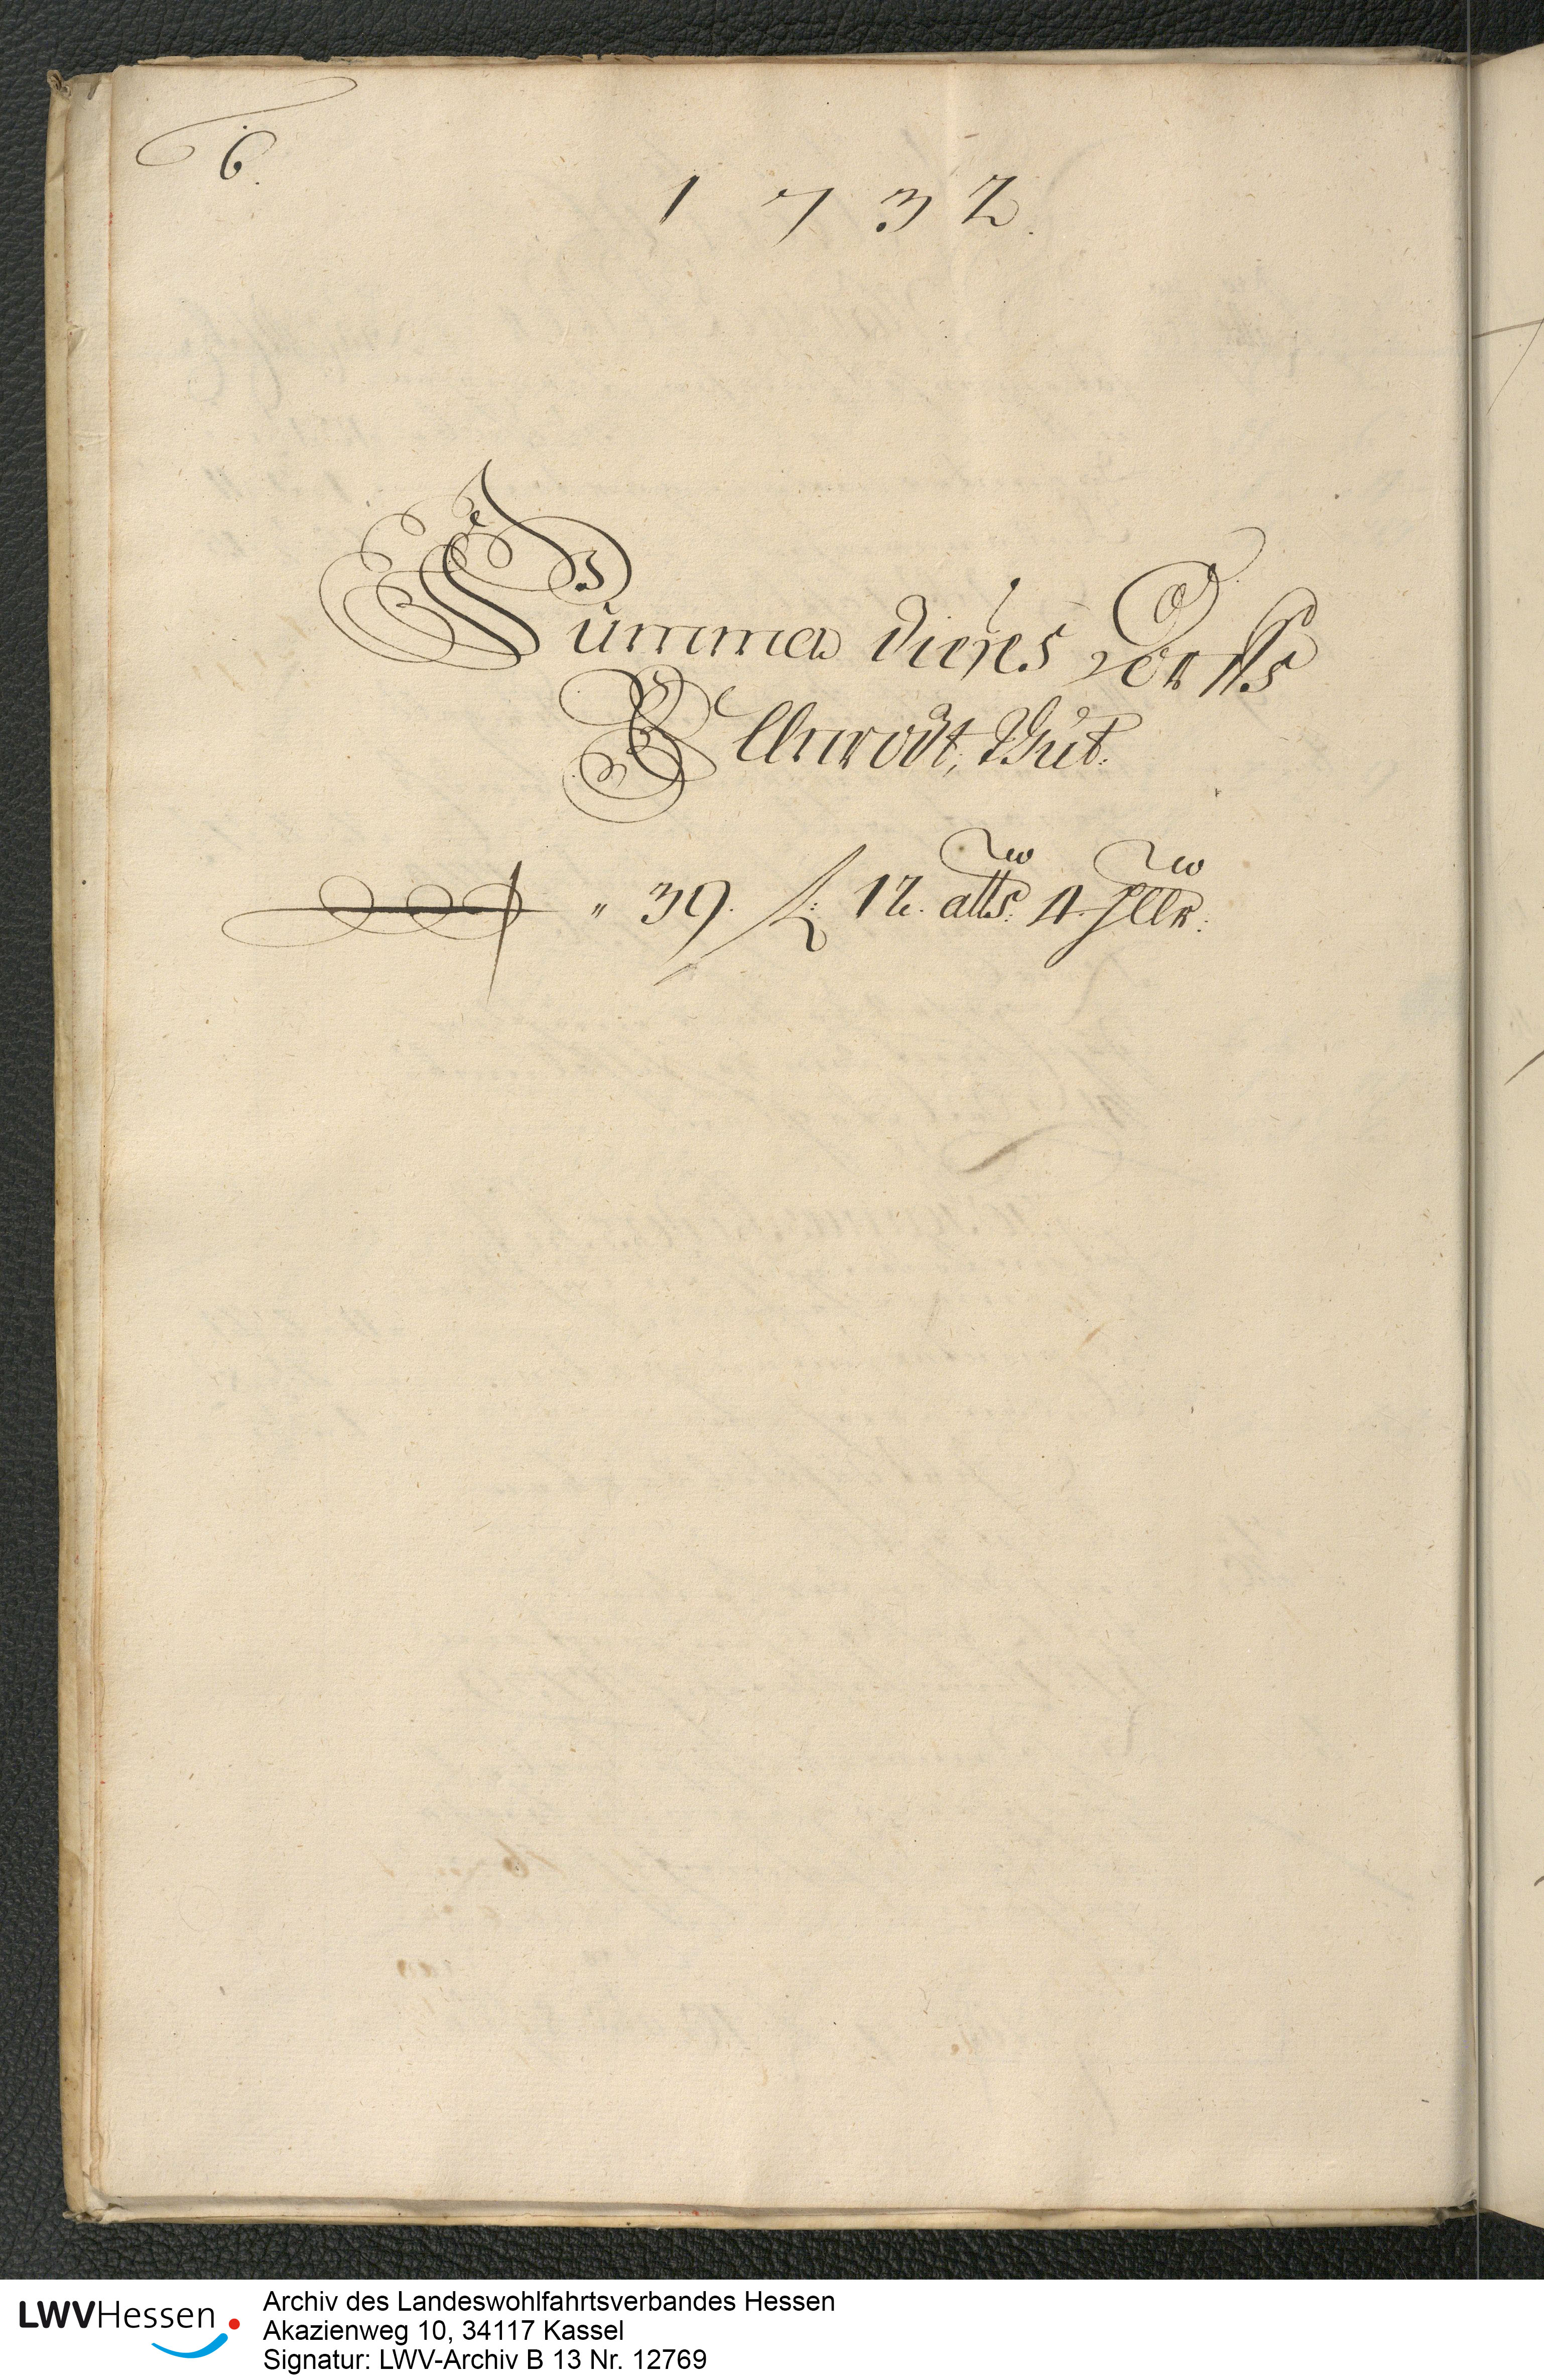 6.
1732.
Summa dieses Dorffs
Ellnrodt, thut:
" 39. f: 12. alb: 4. Hllr:
LWVHessen
Archiv des Landeswohlfahrtsverbandes Hessen
Akazienweg 10, 34117 Kassel
Signatur: LWV-Archiv B 13 Nr. 12769